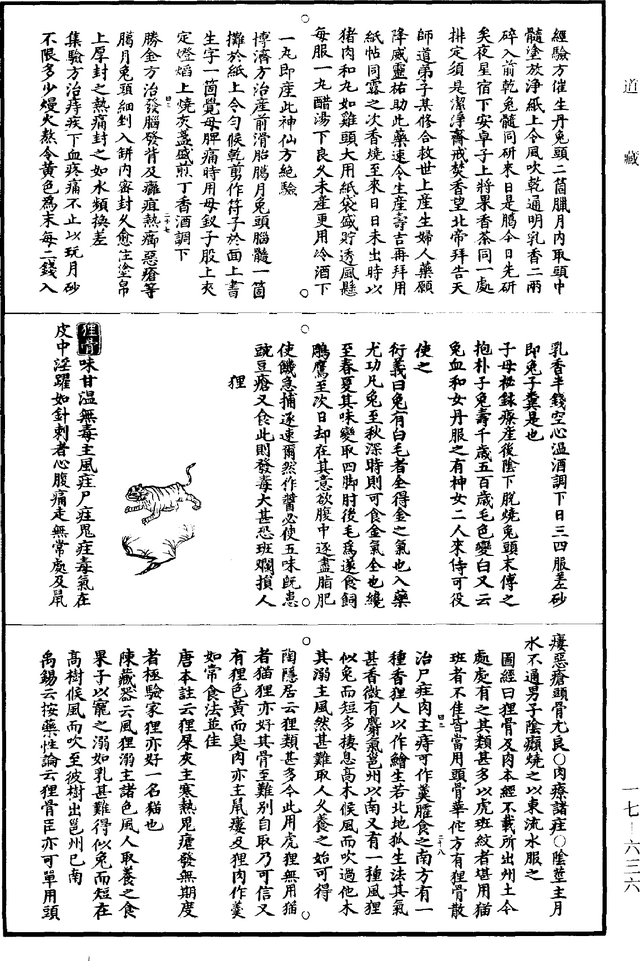 道藏
經驗方催生丹兔頭二箇臘月內取頭中
髓塗放淨紙上令風吹乾通明乳香二兩
碎入前乾兔髓同研來日是臘今日先研
矣夜星宿下安卓子上將果香茶同一處
排定須是潔淨齋戒焚香望北帝拜告天
師道弟子某修合救世上產生婦人藥願
降威靈祐助此藥速令生產壽吉再拜用
紙帖同露之次香燒至來日日未出時以
猪肉和丸如雞頭大用紙袋盛貯透風懸
每服一丸醋湯下良久未產更用冷酒下
一丸即產此神仙方絕驗
博濟方治產前滑胎臘月兔頭腦髓一箇
攤於紙上令勻候乾剪作符子於面上書
生字一箇覺母陣痛時用母釵子股上夾
定燈焰上燒灰盞盛煎丁香酒調下
勝金方治發腦發背及癰疽熱癤惡瘡等
臘月兔頭細剉入餅內密封久愈佳塗帛
上厚封之熱痛封之如水頻換差
集驗方治痔疾下血疼痛不止以玩月砂
不限多少慢火熬令黃色爲末每二錢入
乳香半錢空心溫酒調下日三四服差砂
即兔子糞是也
子母秘錄療產後陰下脫燒兔頭末傅之
抱朴子兔壽千歲五百歲毛色變白又云
兔血和女丹服之有神女二人來侍可役
使之
衍義曰兔有白毛者全得金之氣也入藥
尤功凡兔至秋深時則可食金氣全也纔
至春夏其味變取四脚肘後毛爲逐食飼
鵰鷹至次日却在其意欲腹中逐盡脂肥
使饑急捕逐速爾然作醬必使五味旣患
豌豆瘡又食此則發毒大甚恐斑爛損人
狸
狸骨味甘溫無毒主風疰尸疰鬼疰毒氣在
皮中淫躍如針刺者心腹痛走無常處及鼠
瘻惡瘡頭骨尤良○肉療諸疰○陰莖主月
水不通男子陰癩燒之以東流水服之
圖經曰狸骨及肉本經不載所出州土今
處處有之其類甚多以虎班紋者堪用猫
班者不佳皆當用頭骨華佗方有狸骨散
治尸疰肉主痔可作羹臛食之南方有一
種香狸人以作鱠生若北地狐生法其氣
甚香微有麝氣邕州以南又有一種風狸
似兔而短多棲息高木候風而吹過他木
其溺主風然甚難取人久養之始可得
陶隱居云狸類甚多今此用虎狸無用猫
者猫狸亦好其骨至難別自取乃可信又
有狸色黃而臭肉亦主鼠瘻及狸肉作羹
如常食法並佳
唐本註云狸屎灰主寒熱鬼瘧發無期度
者極驗家狸亦好一名猫也
陳藏器云風狸溺主諸色風人取養之食
果子以籠之溺如乳甚難得似兔而短在
高樹候風而吹至彼樹出邕州已南
禹錫云按藥性論云狸骨臣亦可單用頭
一七—六三六